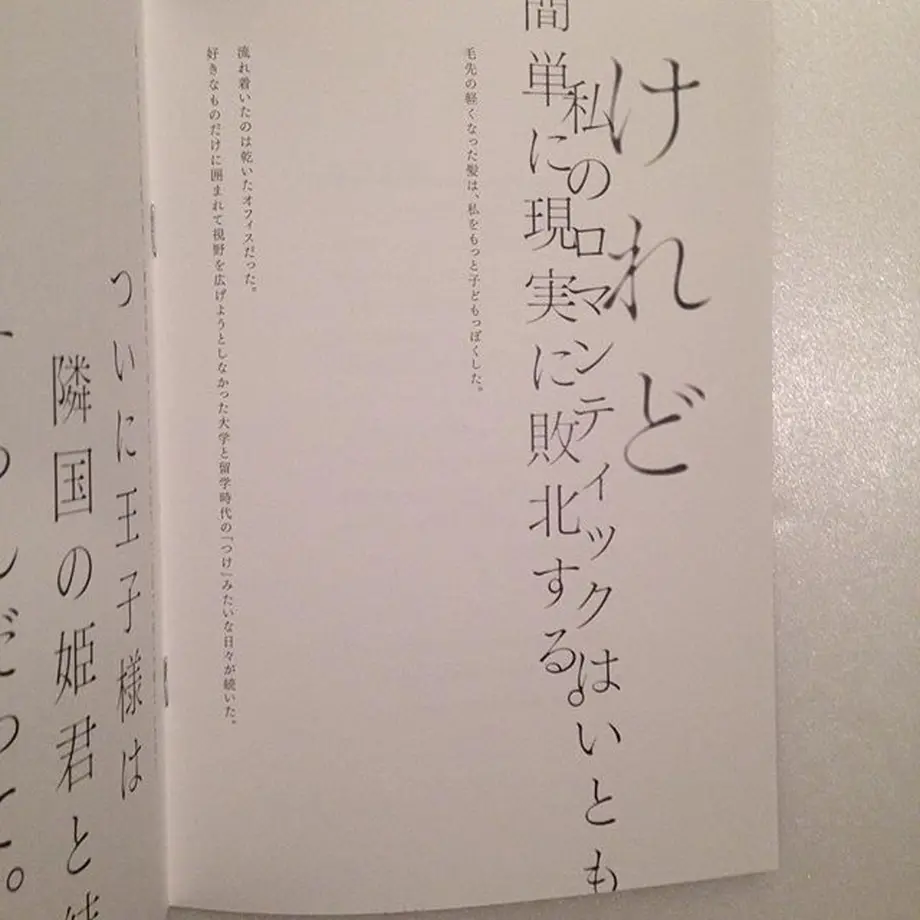 けれど
私のロマンティックはいとも
簡単に現実に敗北する。
毛先の軽くなった髪は、私をもっと子どもっぽくした。
流れ着いたのは乾いたオフィスだった。
好きなものだけに囲まれて視野を広げようとしなかった大学と留学時代の「つけ」みたいな日々が続いた。
ついに王子様は
隣国の姫君と